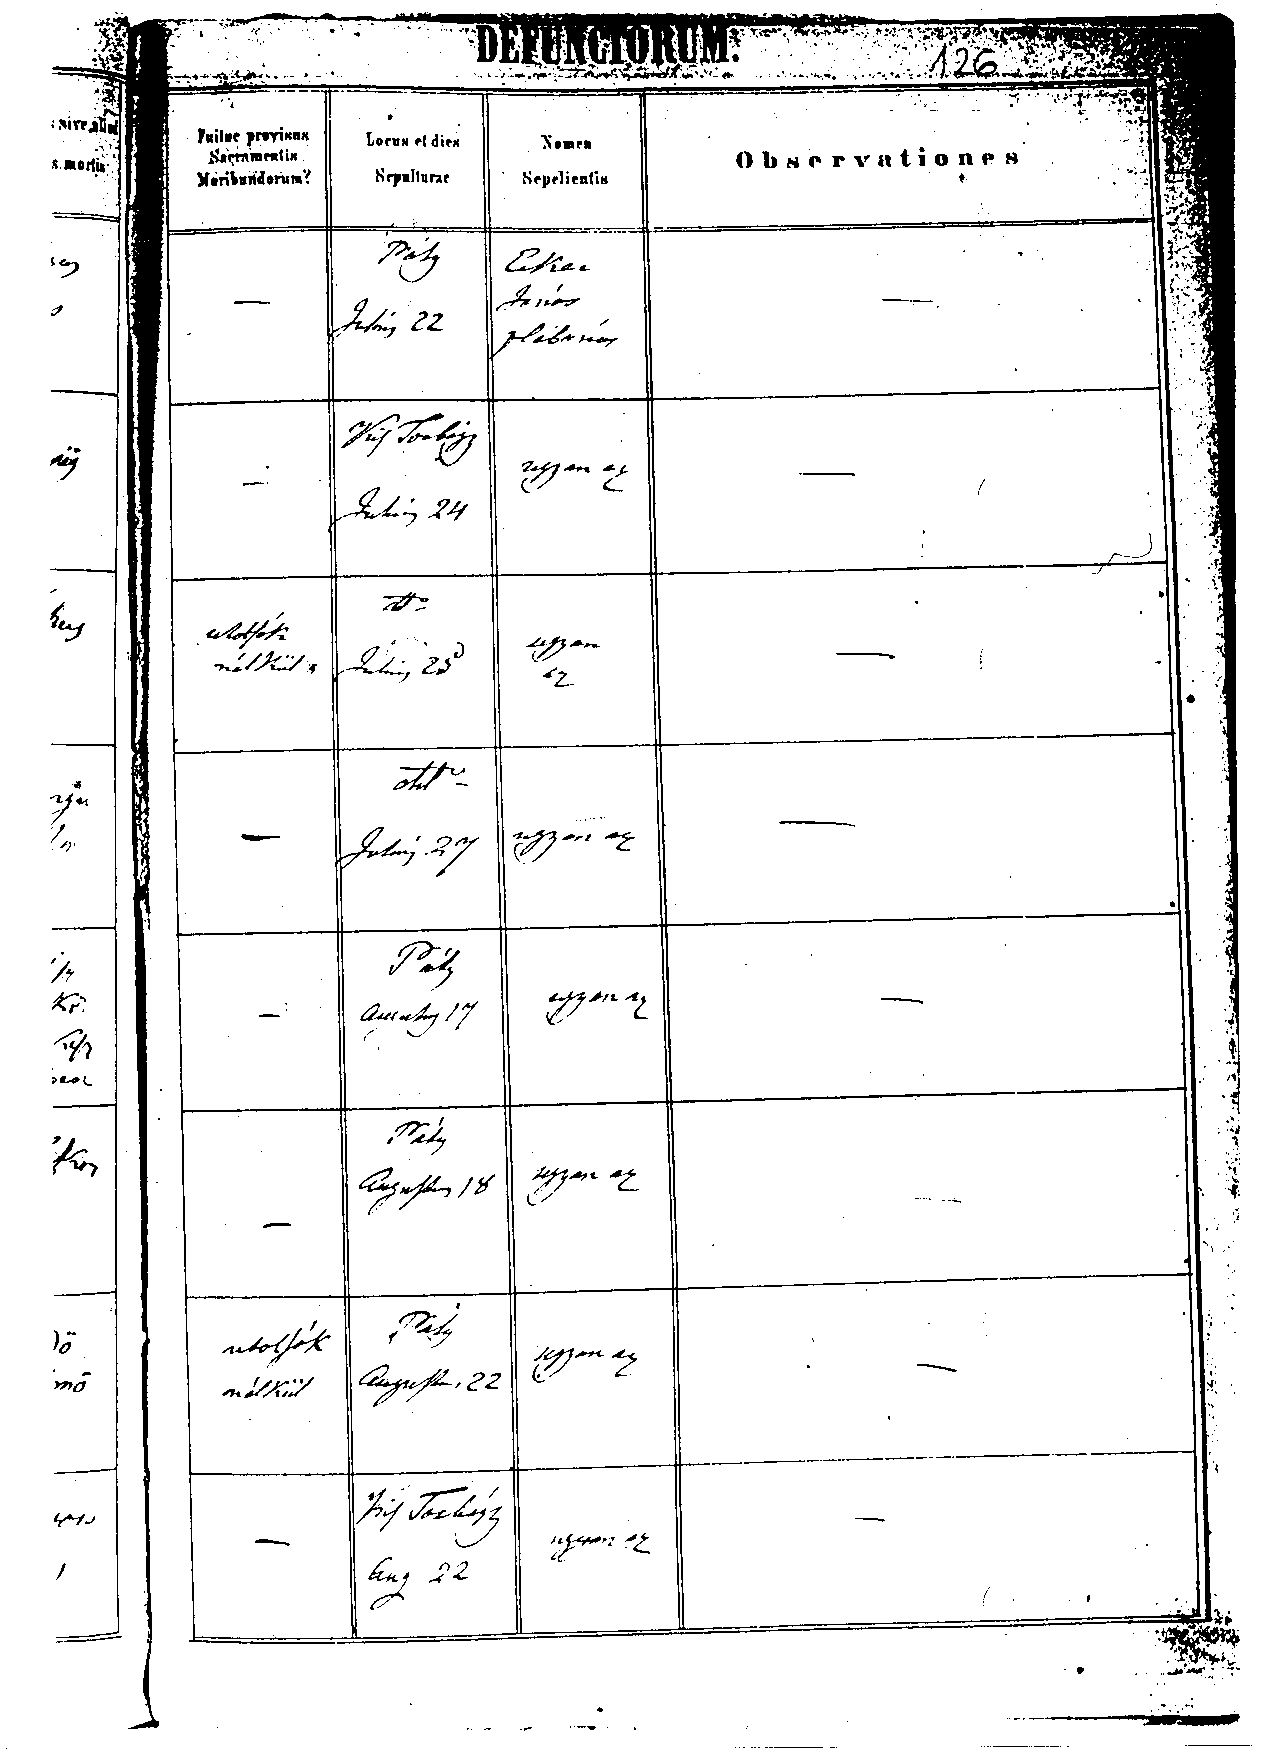 DEFUNCTORUM.
126
Fuitne provisus
Sacramentis
Moribundorum?
Locus et dies
Sepulturae
Nomen
Sepelientis
Observationes
—
Páty
Július 22
János
plébános
—
—
Kis Torbágy
Július 24
ugyan az
—
utolsók
nélkül
Július 25
ugyan
az
—
—
Július 27
ugyan az
—
—
Páty
17
ugyan az
—
—
Páty
Augustus 18
ugyan az
—
utolsók
nélkül
Páty
Augustus 22
ugyan az
—
—
Kis Torbágy
Aug 22
ugyan az
—